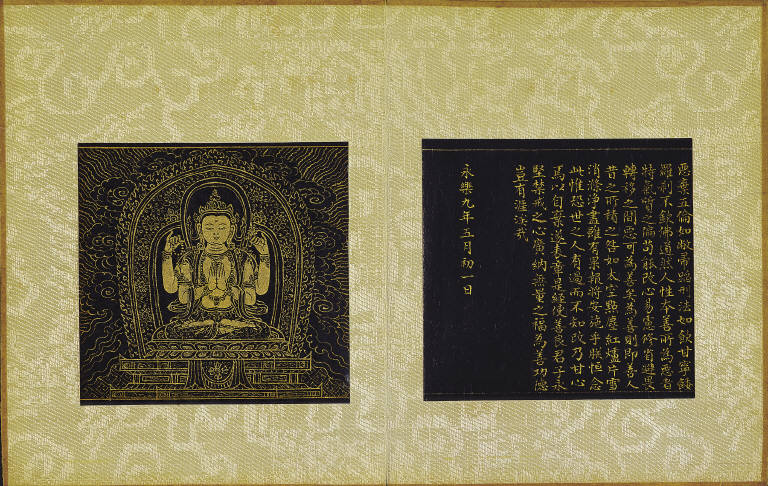 惡棄五倫如敝帚蹈刑法如飲甘寧餒
羅刹不欽佛道然人性本善所為惡者
特氣質之偏苟能改心易慮修省避畏
轉移之間惡可為善矣為善則即善人
昔之所積之咎如太空點塵紅爐片雪
消滌淨盡雖有果報將安施乎朕恒念
此惟恐世之人有過而不知改乃甘心
焉以自棄遂表章是經使善良君子永
堅禁戒之心廣納無量之福為善功德
豈有涯涘哉
永樂九年五月初一日